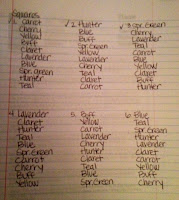 Squares
1 Carrot
Cherry
Yellow
Buff
Claret
Lavender
Blue
Spr. green
Hunter
Teal
✓ 2 Hunter
Blue
Buff
Spr. Green
Yellow
Lavender
Cherry
Teal
Claret
Carrot
✓ 3 Spr. Green
Cherry
Lavender
Teal
Carrot
Blue
Yellow
Claret
Buff
Hunter
4 Lavender
Claret
Hunter
Teal
Blue
Spr. Green
Carrot
Cherry
Buff
Yellow
5 Buff
Yellow
Carrot
Lavender
Cherry
Hunter
Claret
Teal
Blue
Spr. Green
6 Blue
Teal
Buff
Yellow
Spr. Green
Claret
Carrot
Lavender
Hunter
Cherry